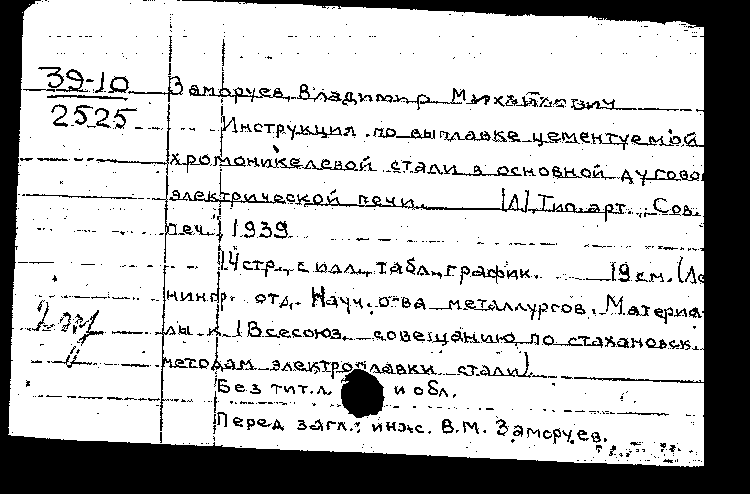 39-10
2525
Заморуев, Владимир Михайлович
Инструкция по выплавке цементуемой
хромоникелевой стали в основной дугово
электрической печи. [Л], Тип. арт. „Сов.
печ.", 1939
14 стр., с илл., табл., график. 19 см. (Ле
нингр. отд. Науч. о-ва металлургов. Материа-
лы к I Всесоюз. совещанию по стахановск.
методам электроплавки стали).
Без тит. л. и обл.
Перед загл.: инж. В.М. Заморуев.